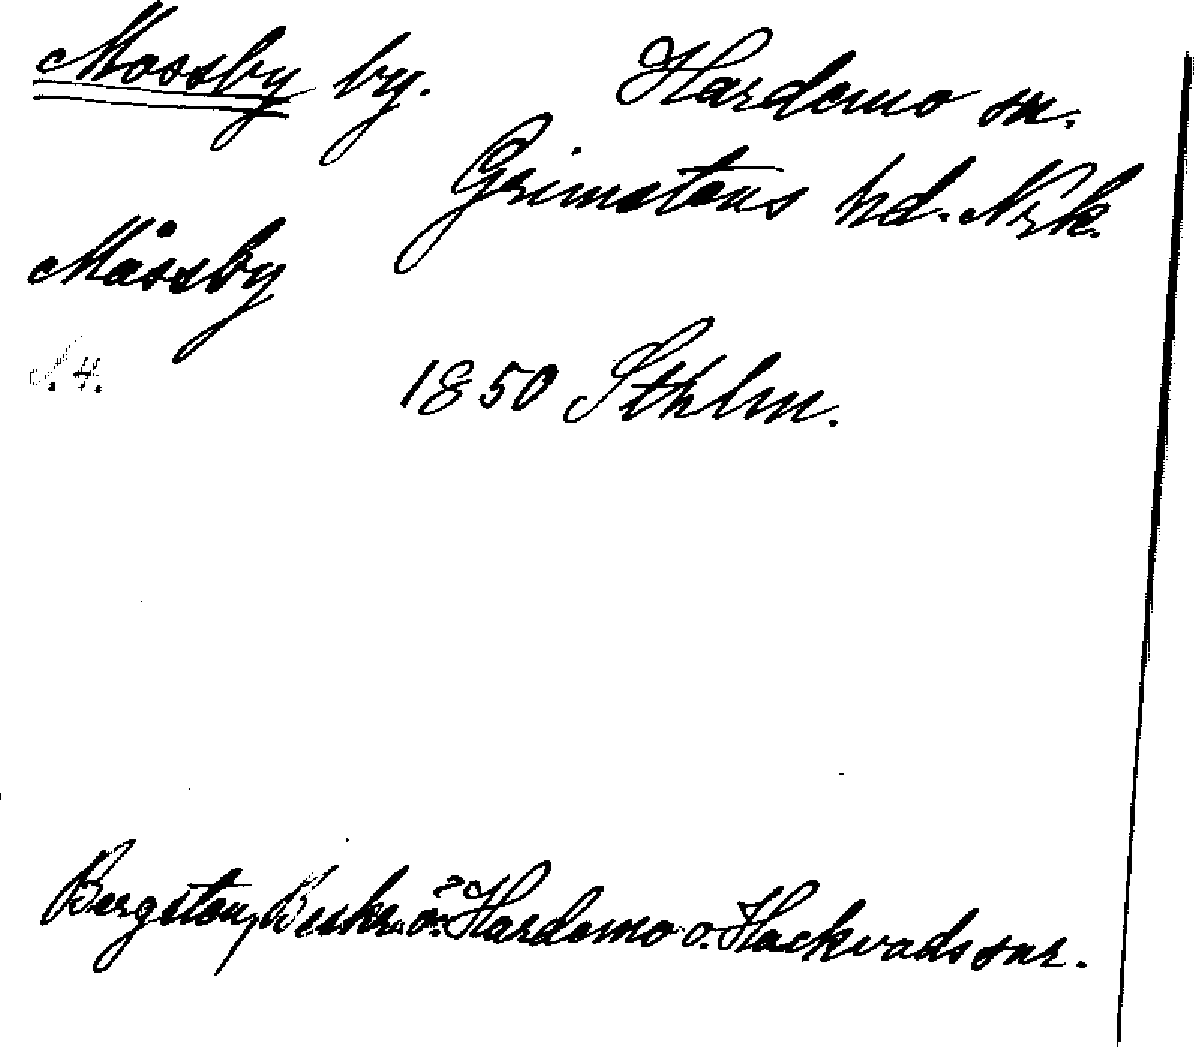 Mossby by. Hardemo sn.
Grimstens hd. Nrk.
Måssby
S. 4. 1850 Sthlm.
Bergsten, Beskr. ö. Hardemo o. Hackvads snr.